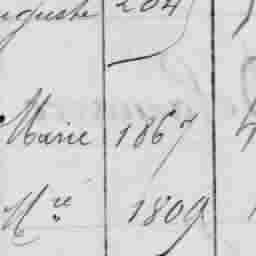 uguste 204
Marie 1867 4
Mie 1809